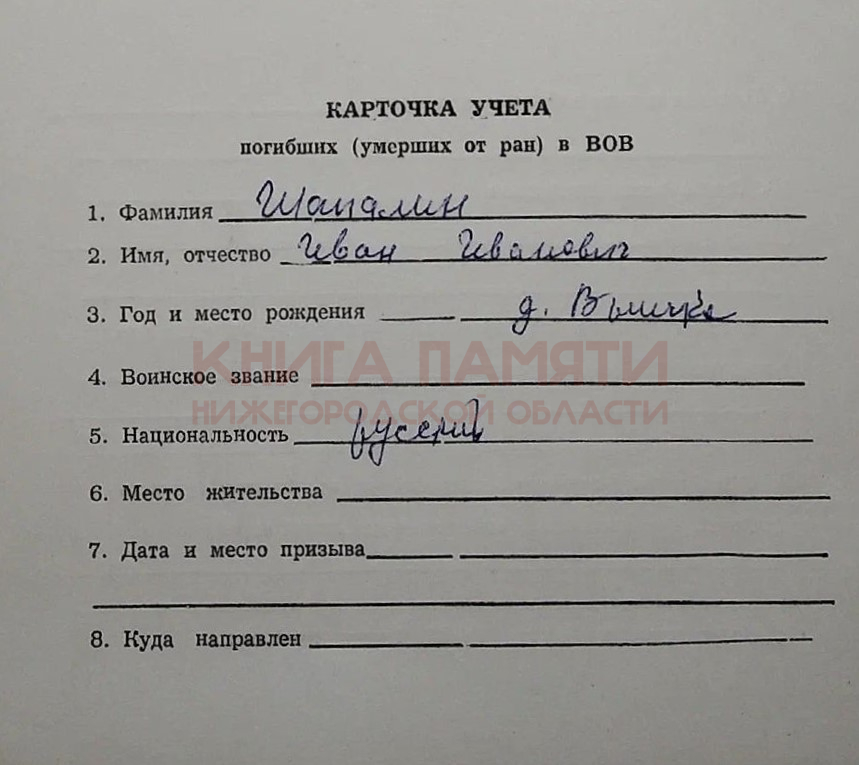 КАРТОЧКА УЧЕТА
погибших (умерших от ран) в ВОВ
1. Фамилия Шапалин
2. Имя, отчество Иван Иванович
3. Год и место рождения д.
КНИГА ПАМЯТИ
4. Воинское звание
НИЖЕГОРОДСКОЙ ОБЛАСТИ
5. Национальность русский
6. Место жительства
7. Дата и место призыва
8. Куда направлен